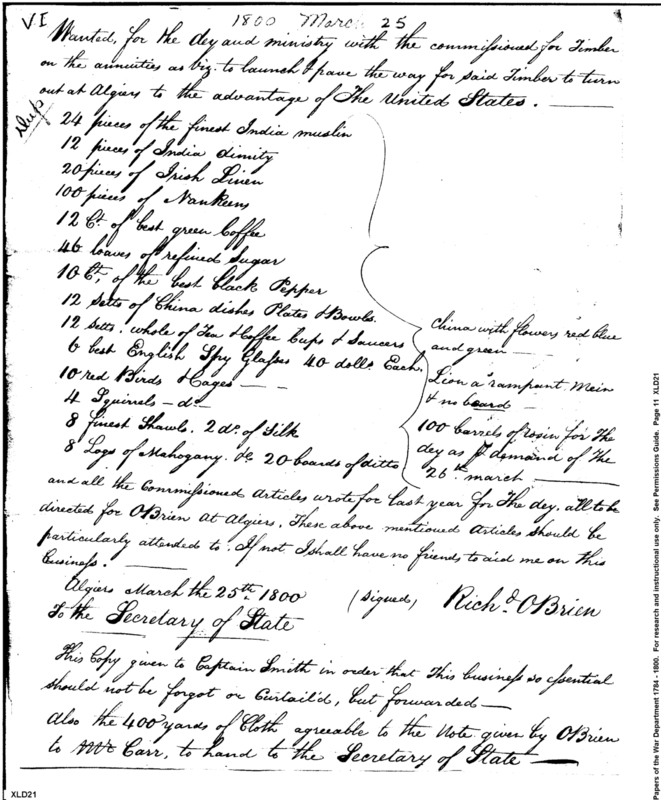 VI
1800 March 25
Wanted, for the dey and ministry with the commissioned for Timber
on the annuities as viz. to launch & pave the way for said Timber to turn
out at Algiers to the advantage of The United States. —
Dup
24 pieces of the finest India muslin
12 pieces of India dimity
20 pieces of Irish Linen
100 pieces of Nankeens
12 Ct. of best green Coffee
46 loaves of refined Sugar
10 Ct. of the best black Pepper
12 Setts of China dishes Plates & Bowls.
12 Setts. whole of Tea & Coffee Cups & Saucers
6 best English Spy Glasses 40 dolls. Each.
10 red Birds & Cages —
4 Squirrels — do
8 finest Shawls. 2 do. of Silk
8 Logs of Mahogany. do 20 boards of ditto
China with flowers red blue
and green —
Lion a rampant Mein
& no beard —
100 barrels of rosin for The
dey as demand of The
26th. march —
and all the Commissioned Articles wrote for last year for The dey. all to be
directed for OBrien at Algiers, These above mentioned Articles should be
particularly attended to. If not I shall have no friends to aid me on this
Business. —
Algiers March the 25th. 1800 (signed) Richd. OBrien
To the Secretary of State
This Copy given to Captain Smith in order that This business so essential
should not be forgot or Curtail'd, but forwarded —
Also the 400 yards of Cloth agreeable to the Note given by OBrien
to Mr Carr, to hand to the Secretary of State —
XLD21
Papers of the War Department 1784 - 1800. For research and instructional use only. See Permissions Guide. Page 11 XLD21